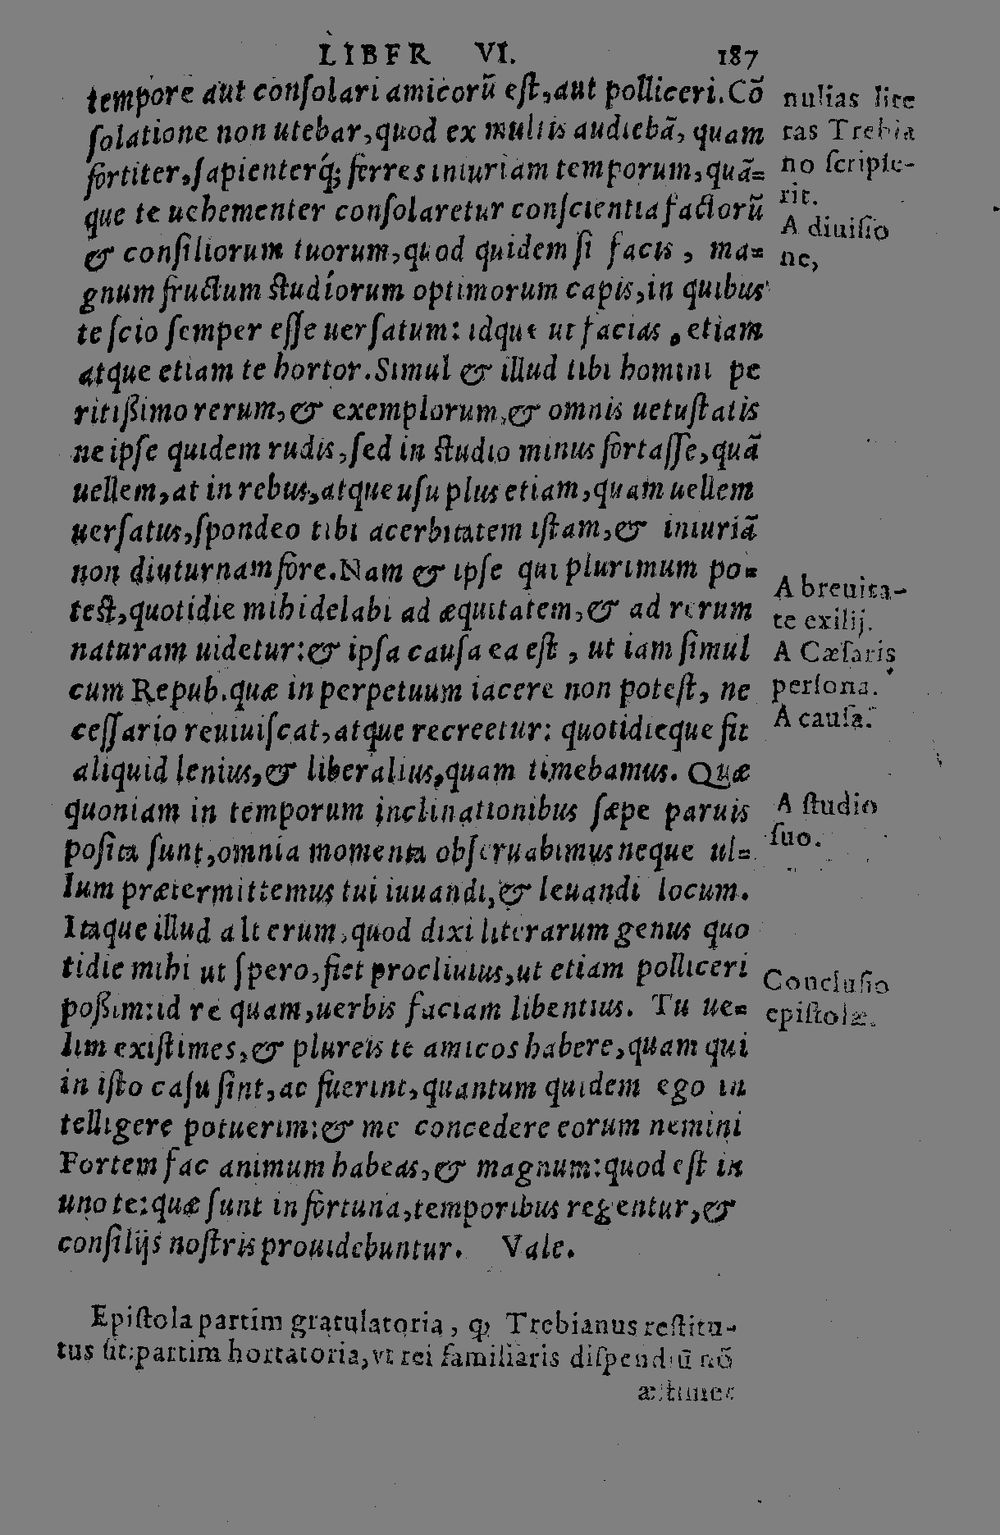 LIBER VI. 187
tempore aut conſolari amicorũ eſt, aut polliceri. Cõ
ſolatione non utebar, quod ex multis audiebã, quam
fortiter, ſapienterq́; ferres iniuriam temporum, quã=
que te uehementer conſolaretur conſcientia factorũ
& conſiliorum tuorum, quod quidem ſi facis, ma=
gnum fructum ſtudiorum optimorum capis, in quibus
te ſcio ſemper eſſe uerſatum: idque ut facias, etiam
atque etiam te hortor. Simul & illud tibi homini pe
ritißimo rerum, & exemplorum, & omnis uetuſtatis
ne ipſe quidem rudis, ſed in ſtudio minus fortaſſe, quã
uellem, at in rebus, atque uſu plus etiam, quam uellem
uerſatus, ſpondeo tibi acerbitatem iſtam, & iniuriã
non diuturnam fore. Nam & ipſe qui plurimum po=
teſt, quotidie mihi delabi ad æquitatem, & ad rerum
naturam uidetur: & ipſa cauſa ea eſt, ut iam ſimul
cum Repub. quæ in perpetuum iacere non poteſt, ne
ceſſario reuiuiſcat, atque recreetur: quotidieque fit
aliquid lenius, & liberalius, quam timebamus. Quæ
quoniam in temporum inclinationibus ſæpe paruis
poſita ſunt, omnia momenta obſeruabimus neque ul=
lum prætermittemus tui iuuandi, & leuandi locum.
Itaque illud alterum, quod dixi literarum genus quo
tidie mihi ut ſpero, fiet procliuius, ut etiam polliceri
poßim: id re quam, uerbis faciam libentius. Tu ue=
lim exiſtimes, & plureis te amicos habere, quam qui
in iſto caſu ſint, ac fuerint, quantum quidem ego in
telligere potuerim: & me concedere eorum nemini
Fortem fac animum habeas, & magnum: quod eſt in
uno te: quæ ſunt in fortuna, temporibus regentur, &
conſilijs noſtris prouidebuntur. Vale.
Epiſtola partim gratulatoria, ꝙ Trebianus reſtitu-
tus ſit: partim hortatoria, vt rei familiaris diſpendiũ nõ
æſtimet
nullas lite
ras Trebia
no ſcripſe-
rit.
A diuiſio
ne,
A breuita-
te exilij.
A Cæſaris
perſona.
A cauſa.
A ſtudio
ſuo.
Concluſio
epiſtolæ.